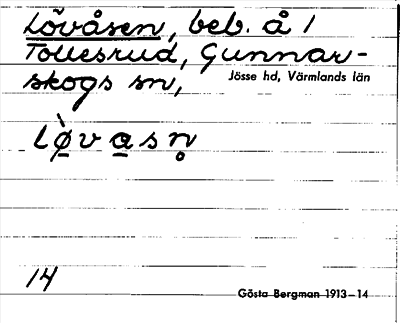 Lövåsen, beb. å 1
Tollesrud, Gunnar-
skogs sn,
Jösse hd, Värmlands län
lø̀vasn̥
14
Gösta Bergman 1913–14